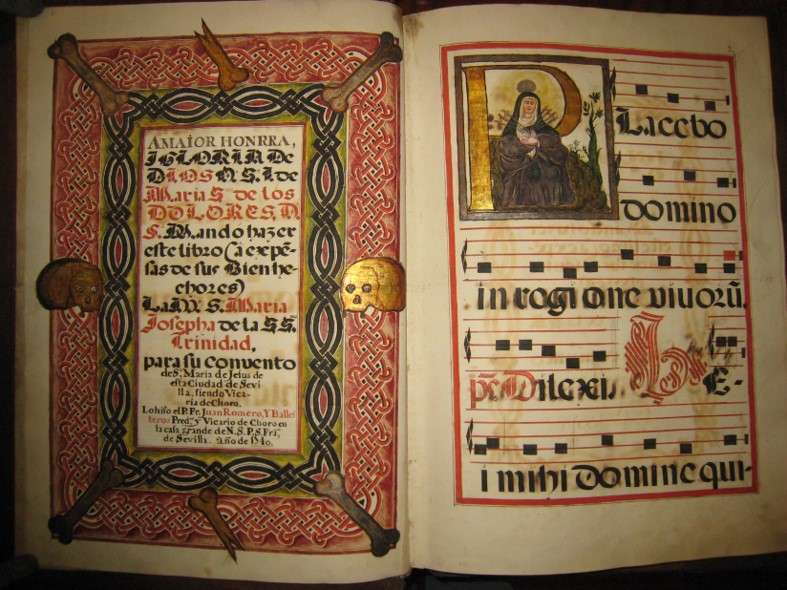 AMAIOR HONRRA,
IGLORIA De
DIOS N. S. I. de
Maria S. de los
DOLORES, N.
S. Mando hazer
este libro (a expē-
sas de sus Bien he-
chores)
La M. S. Maria
Josepha de la SS.
Trinidad,
para su convento
de S. Maria de Jesus de
esta Ciudad de Sevi
lla, siendo Vica
ria de Choro.
Lo hiso el P. Fr. Juan Romero, Y Balles
teros Pred.r y Vicario de Choro en
la casa grande de N. S. P. S. Frã.
de Sevilla. año de 1740.
Placebo
domino
in regione vivorũ.
ps. Dilexi. HE-
i mihi domine qui-